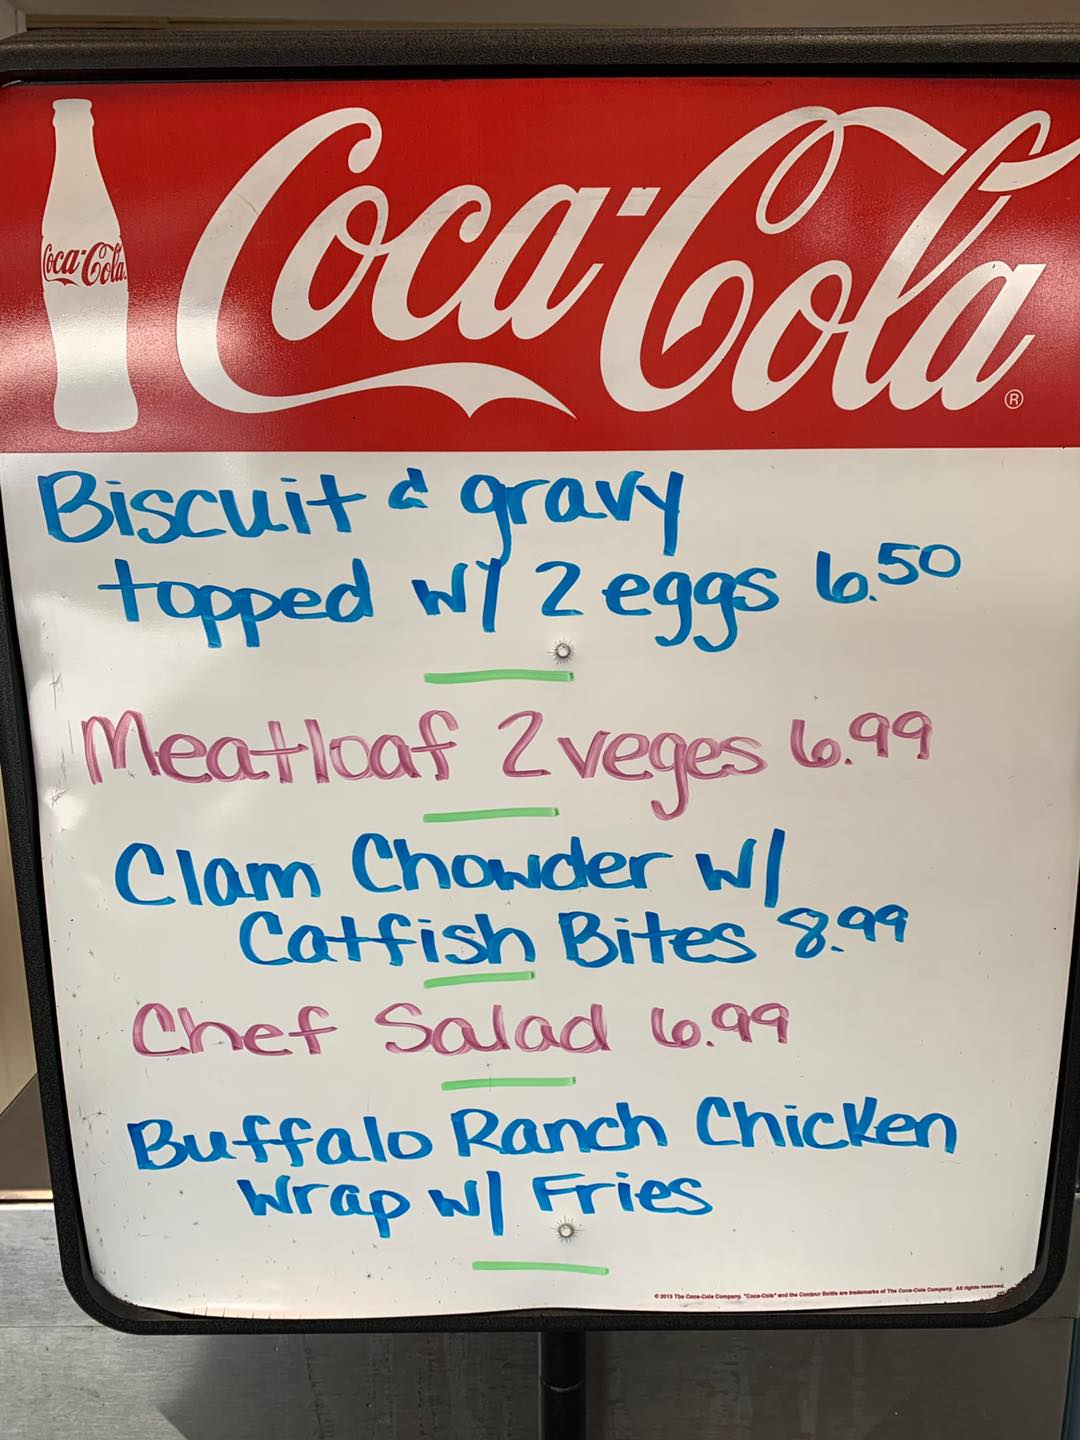 Coca-Cola
Coca-Cola ®
Biscuit & gravy
topped w/ 2 eggs 6.50
Meatloaf 2 veges 6.99
Clam Chowder w/
Catfish Bites 8.99
Chef Salad 6.99
Buffalo Ranch Chicken
Wrap w/ Fries
© 2013 The Coca-Cola Company. "Coca-Cola" and the Contour Bottle are trademarks of The Coca-Cola Company. All rights reserved.